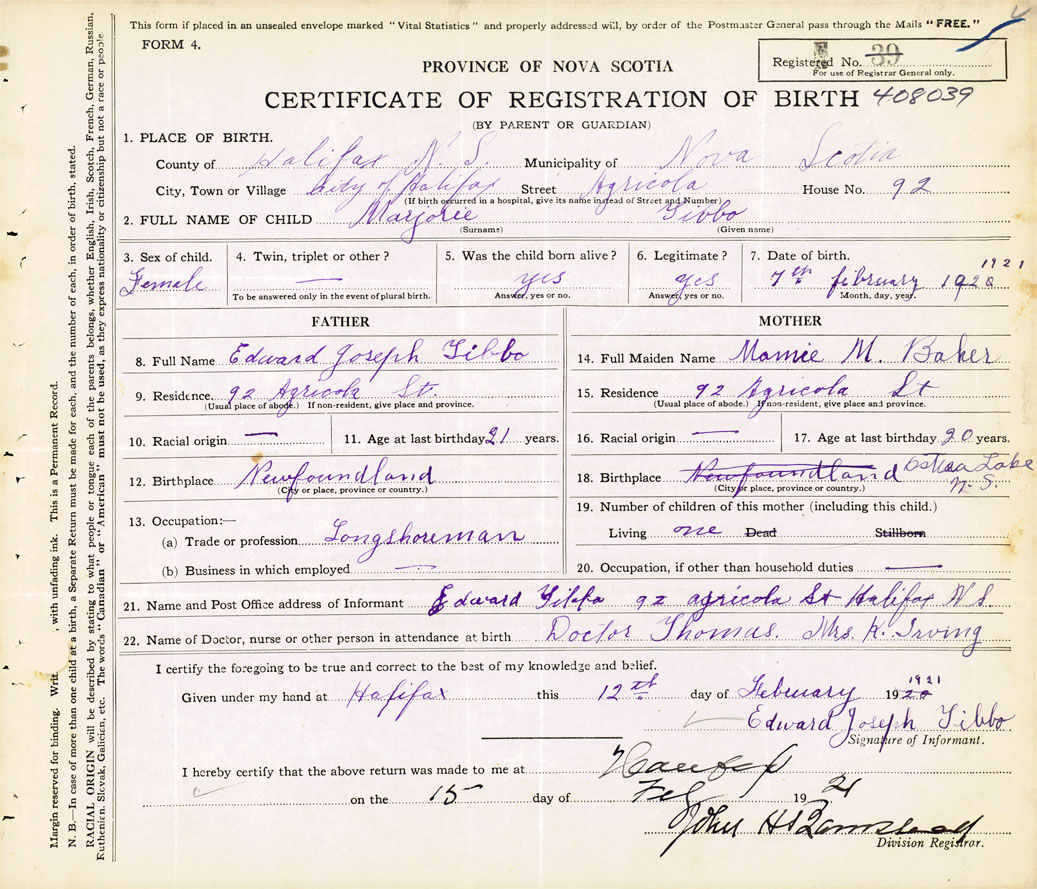 This form if placed in an unsealed envelope marked "Vital Statistics" and properly addressed will, by order of the Postmaster General pass through the Mails "FREE."
FORM 4.
Registered No. 39
For use of Registrar General only.
PROVINCE OF NOVA SCOTIA
CERTIFICATE OF REGISTRATION OF BIRTH 408039
(BY PARENT OR GUARDIAN)
1. PLACE OF BIRTH.
County of Halifax N. S. Municipality of Nova Scotia
City, Town or Village City of Halifax Street Agricola House No. 92
(If birth occurred in a hospital, give its name instead of Street and Number)
2. FULL NAME OF CHILD Marjorie Tibbo
(Surname) (Given name)
3. Sex of child. 4. Twin, triplet or other? 5. Was the child born alive? 6. Legitimate? 7. Date of birth?
1921
Female — yes yes 7th february 1920
To be answered only in the event of plural birth. Answer, yes or no. Answer, yes or no. Month, day, year.
FATHER
8. Full Name Edward Joseph Tibbo
9. Residence. 92 Agricola St.
(Usual place of abode.) If non-resident, give place and province.
10. Racial origin — 11. Age at last birthday 21 years.
12. Birthplace Newfoundland
(City or place, province or country.)
13. Occupation:—
(a) Trade or profession Longshoreman
(b) Business in which employed —
MOTHER
14. Full Maiden Name Mamie M. Baker
15. Residence 92 Agricola St
(Usual place of abode.) If non-resident, give place and province.
16. Racial origin — 17. Age at last birthday 20 years.
18. Birthplace Newfoundland Ostrea Lake
N. S.
(City or place, province or country.)
19. Number of children of this mother (including this child.)
Living one Dead Stillborn
20. Occupation, if other than household duties —
21. Name and Post Office address of Informant Edward Tibbo 92 agricola St Halifax N S.
22. Name of Doctor, nurse or other person in attendance at birth Doctor Thomas. Mrs. K. Irving
I certify the foregoing to be true and correct to the best of my knowledge and belief.
1921
Given under my hand at Halifax this 12th day of February 1920
Edward Joseph Tibbo
Signature of Informant.
I hereby certify that the above return was made to me at Halifax
on the 15 day of Feb 19 21
John H
Division Registrar.
Margin reserved for binding. Writ , with unfading ink. This is a Permanent Record.
N. B.—In case of more than one child at a birth, a Separate Return must be made for each, and the number of each, in order of birth, stated.
RACIAL ORIGIN will be described by stating to what people or tongue each of the parents belongs, whether English, Irish, Scotch, French, German, Russian,
Ruthenian, Slovak, Galician, etc. The words "Canadian" or "American" must not be used, as they express nationality or citizenship but not a race or people.